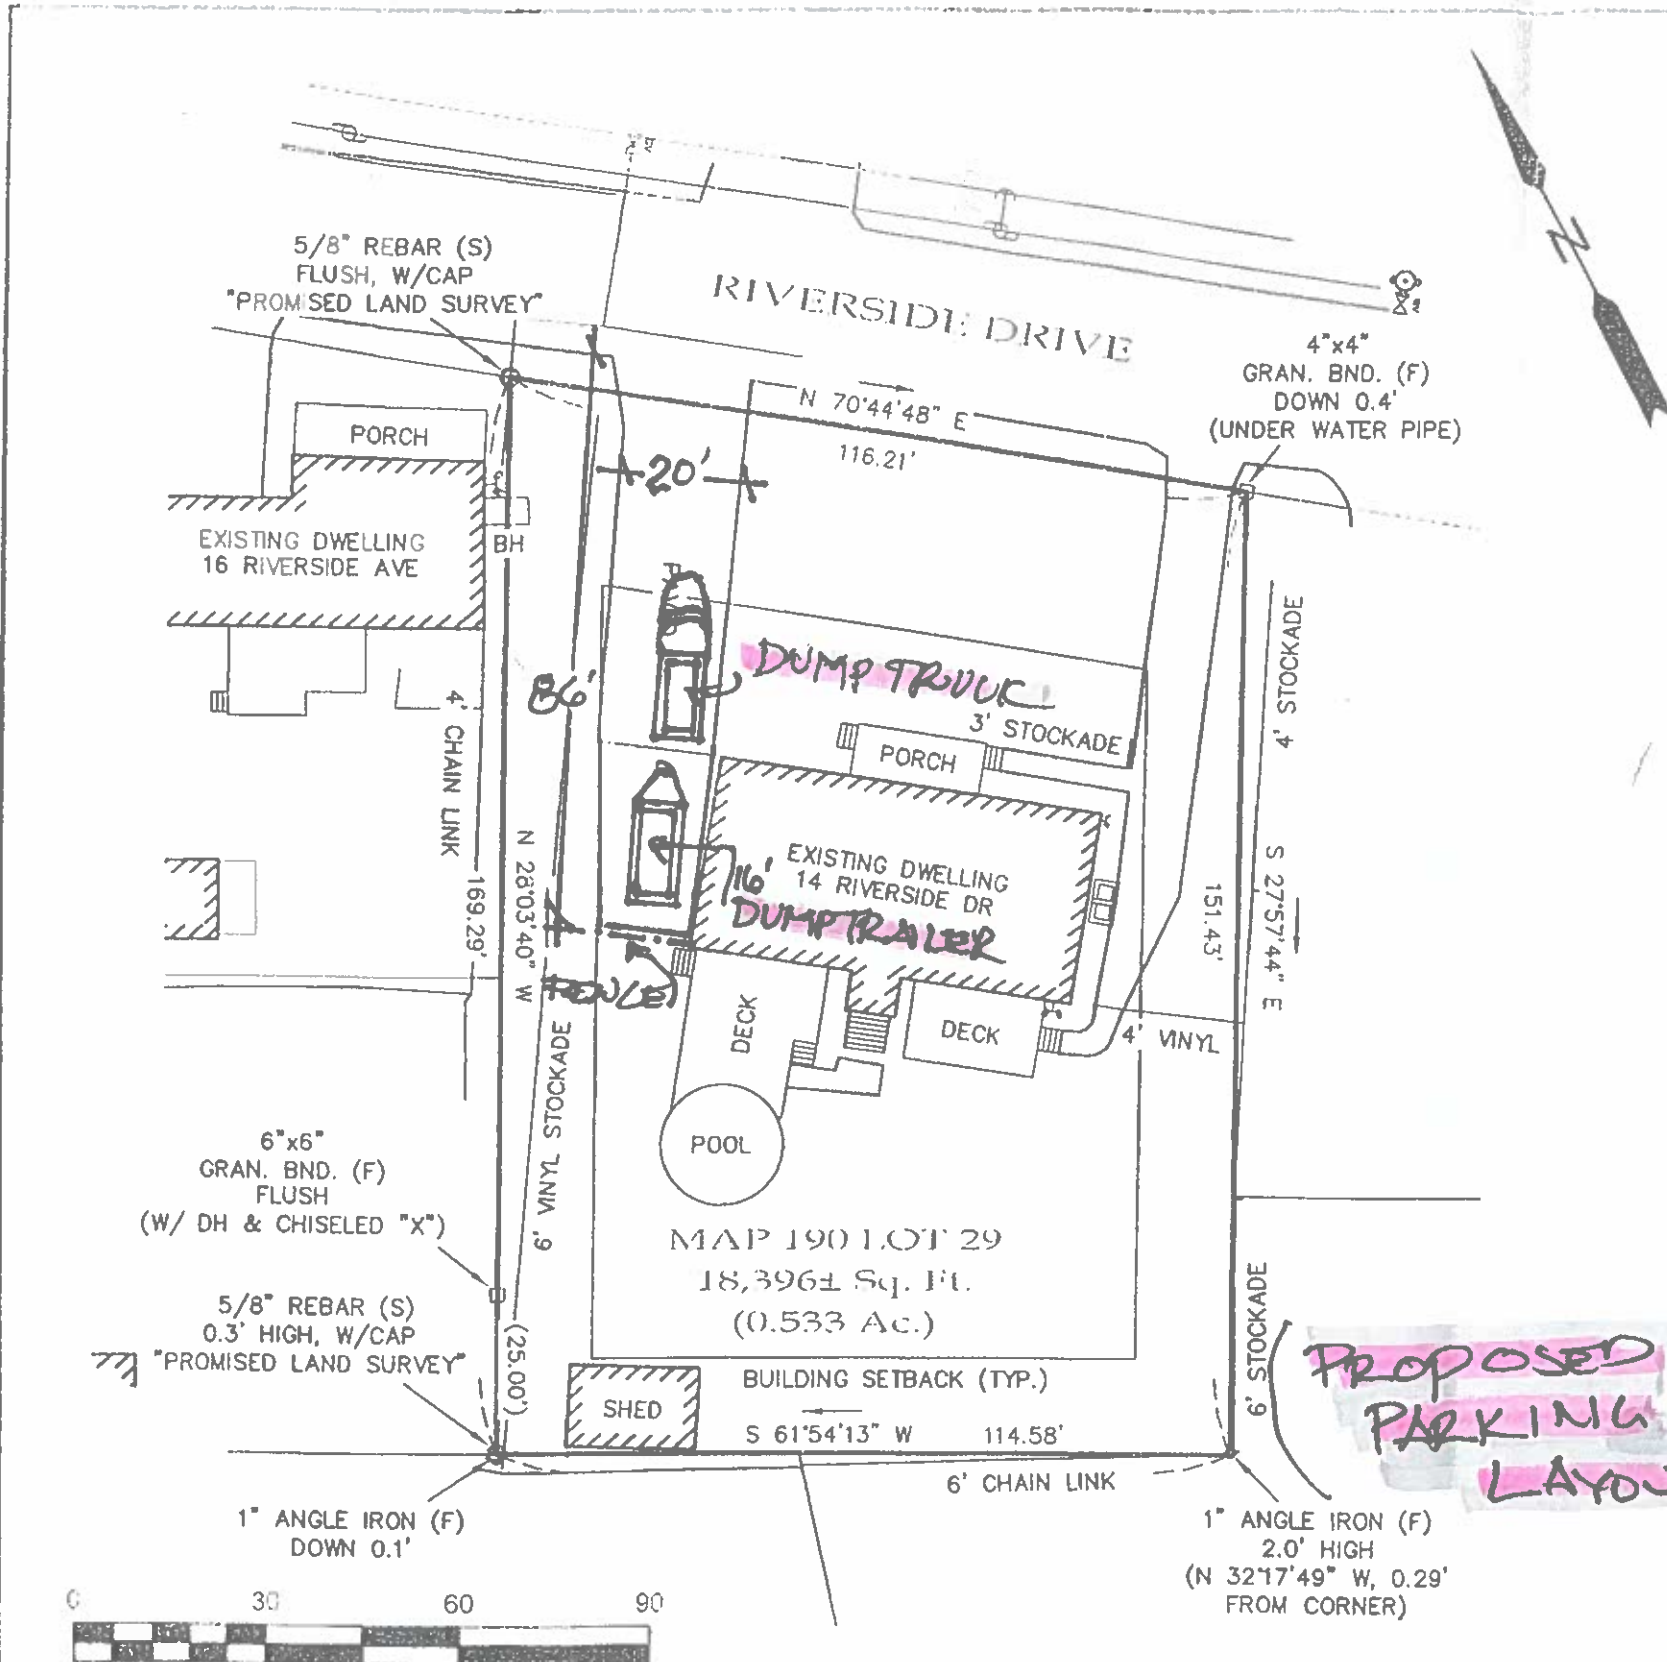 5/8" REBAR (S)
FLUSH, W/CAP
"PROMISED LAND SURVEY"
RIVERSIDE DRIVE
N
4"x4"
GRAN. BND. (F)
DOWN 0.4'
(UNDER WATER PIPE)
N 70°44'48" E
116.21'
PORCH
20'
EXISTING DWELLING
16 RIVERSIDE AVE
BH
86'
DUMP TRUCK
3' STOCKADE
PORCH
4' STOCKADE
4' CHAIN LINK
169.29'
N 28°03'40" W
EXISTING DWELLING
14 RIVERSIDE DR
16'
DUMP TRAILER
151.43'
S 27°57'44" E
DECK
DECK
4' VINYL
6' VINYL STOCKADE
POOL
6"x6"
GRAN. BND. (F)
FLUSH
(W/ DH & CHISELED "X")
MAP 190 LOT 29
18,396± Sq. Ft.
(0.533 Ac.)
5/8" REBAR (S)
0.3' HIGH, W/CAP
"PROMISED LAND SURVEY"
(25.00')
6' STOCKADE
PROPOSED
PARKING
LAYOU
BUILDING SETBACK (TYP.)
SHED
S 61°54'13" W 114.58'
6' CHAIN LINK
1" ANGLE IRON (F)
DOWN 0.1'
1" ANGLE IRON (F)
2.0' HIGH
(N 32°17'49" W, 0.29'
FROM CORNER)
0 30 60 90